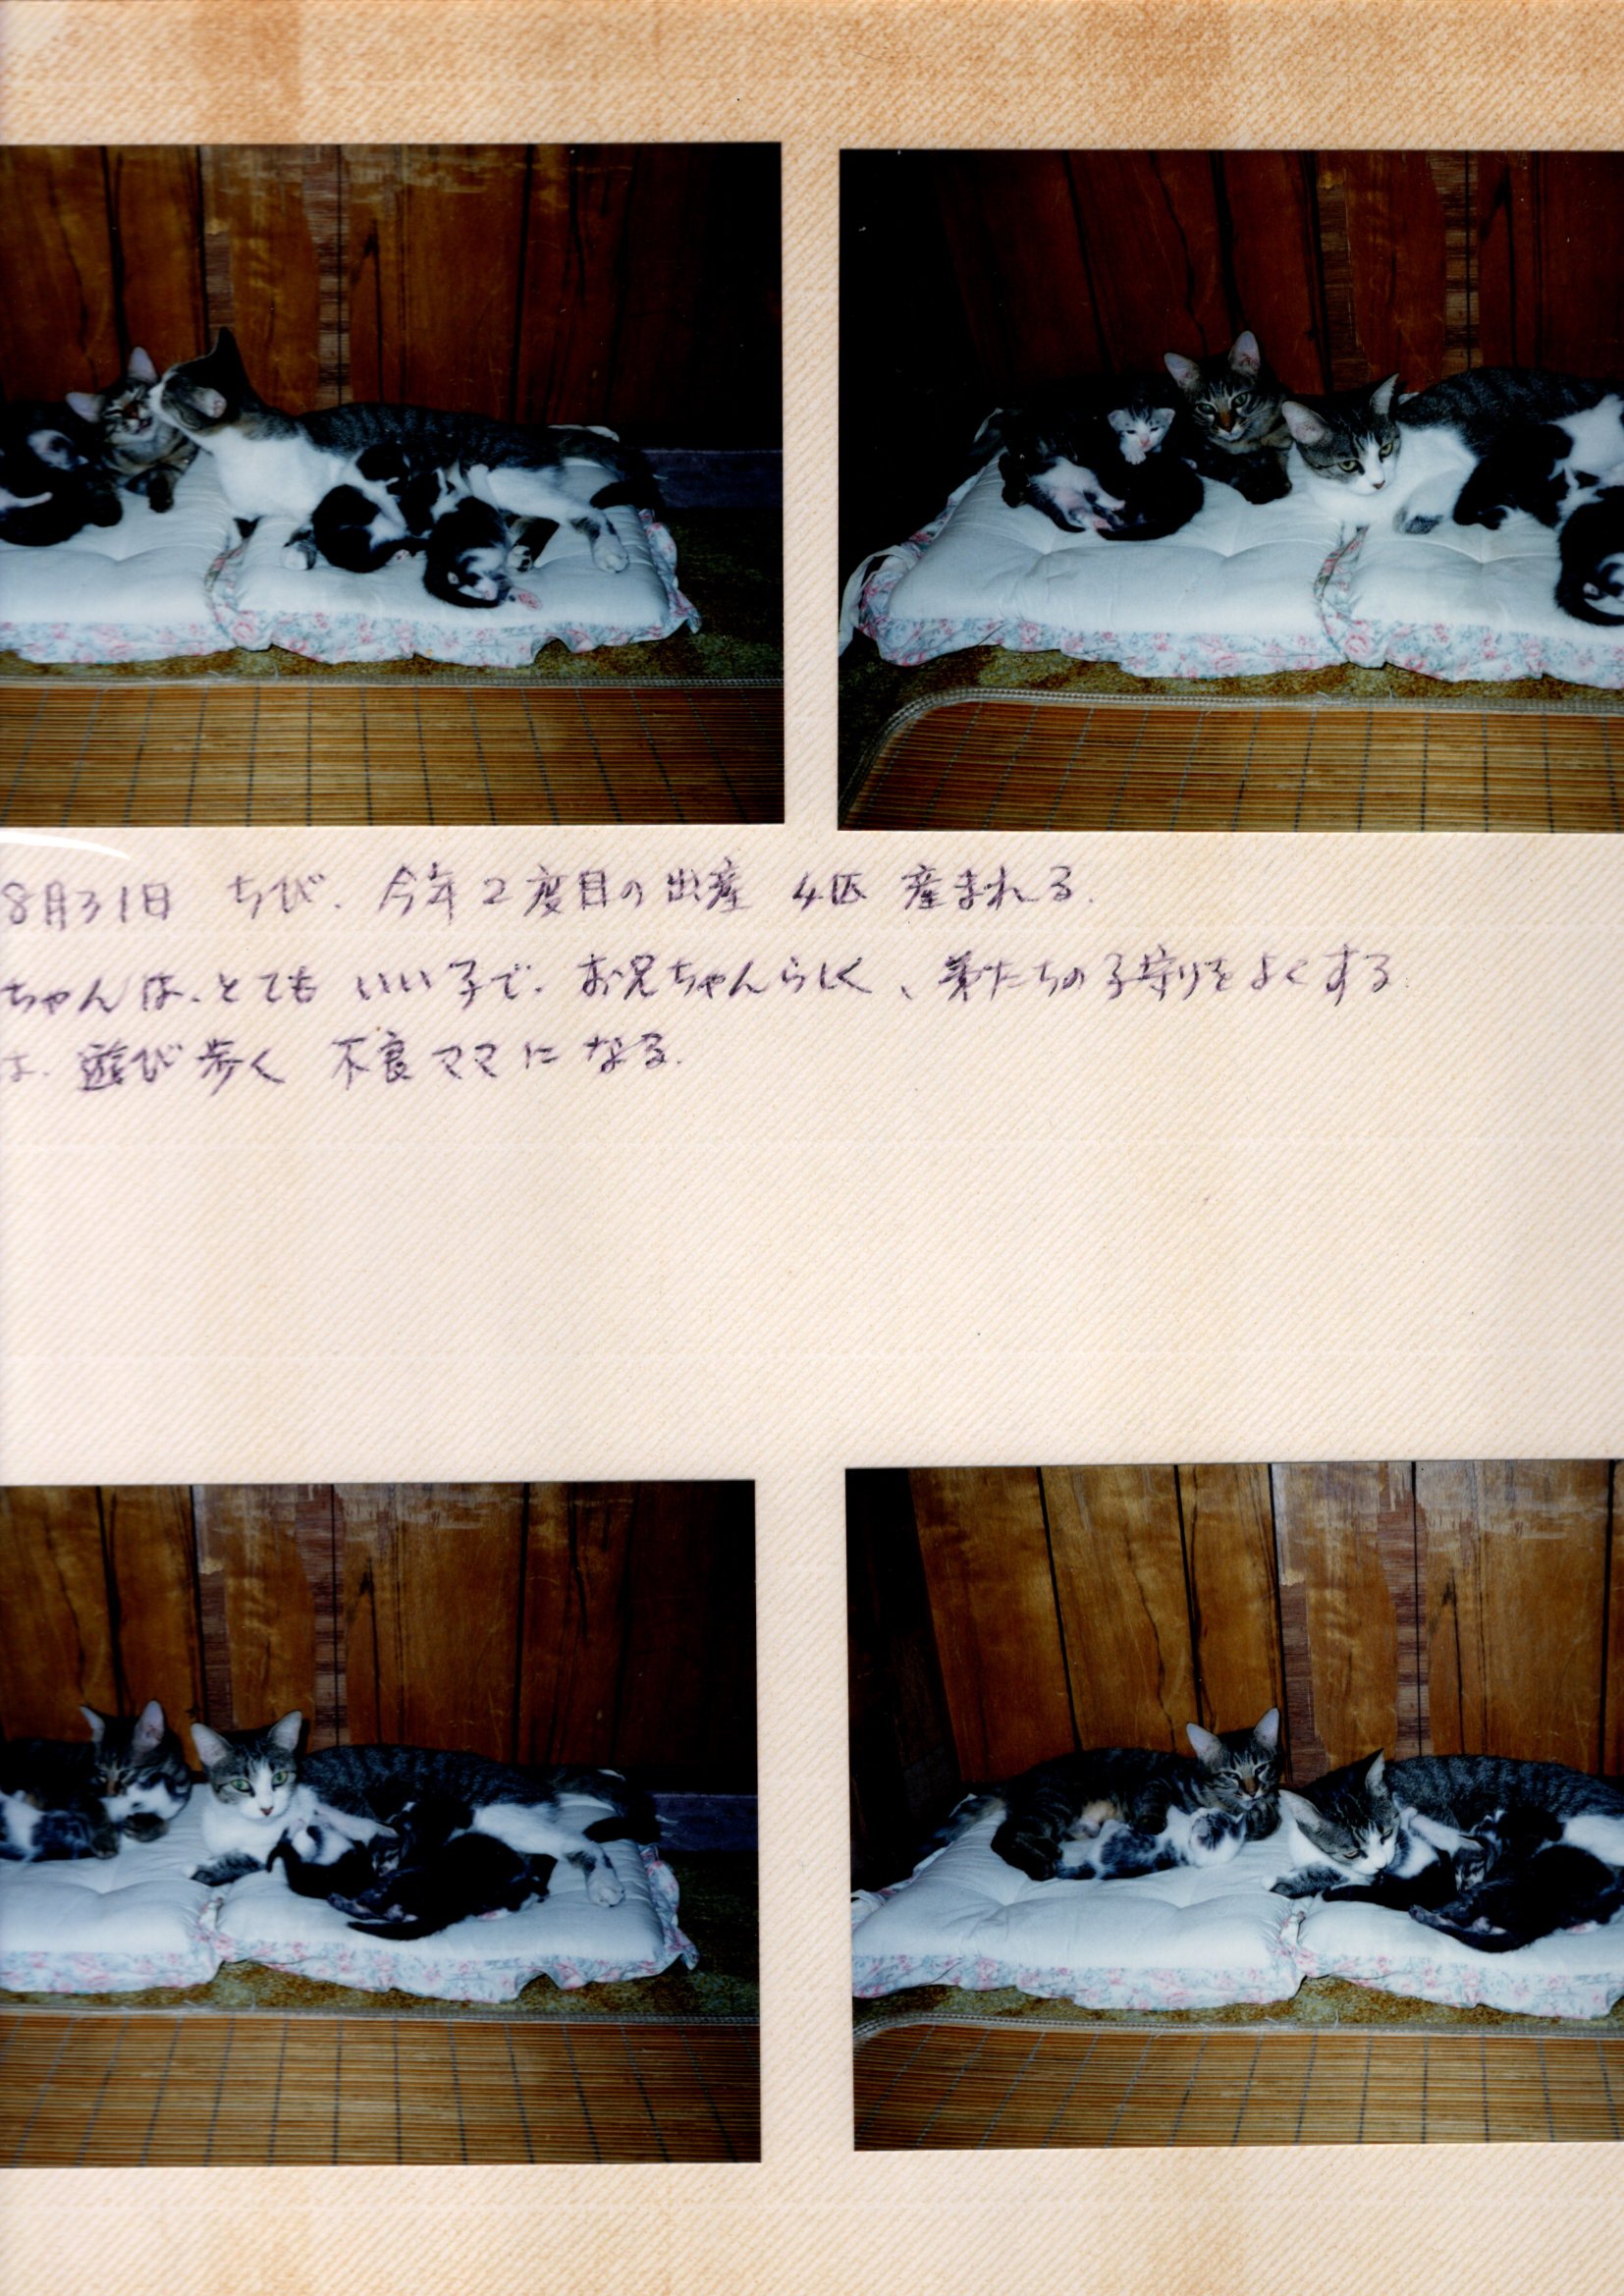 8月31日 ちび、今年2度目の出産 4匹 産まれる.
ちゃんは、とても いい子で、お兄ちゃんらしく、弟たちの子守りをよくする.
は、遊び歩く 不良ママになる.